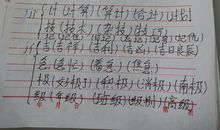 计(计算)(算计)(合计)(计划)
技(技术)(杂技)(技巧)
吉(吉祥)(吉利)(吉凶)(吉日良辰)
急(急忙)(着急)(焦急)
极(好极了)(积极)(消极)(南极)
级(年级)(班级)(级别)(高级)